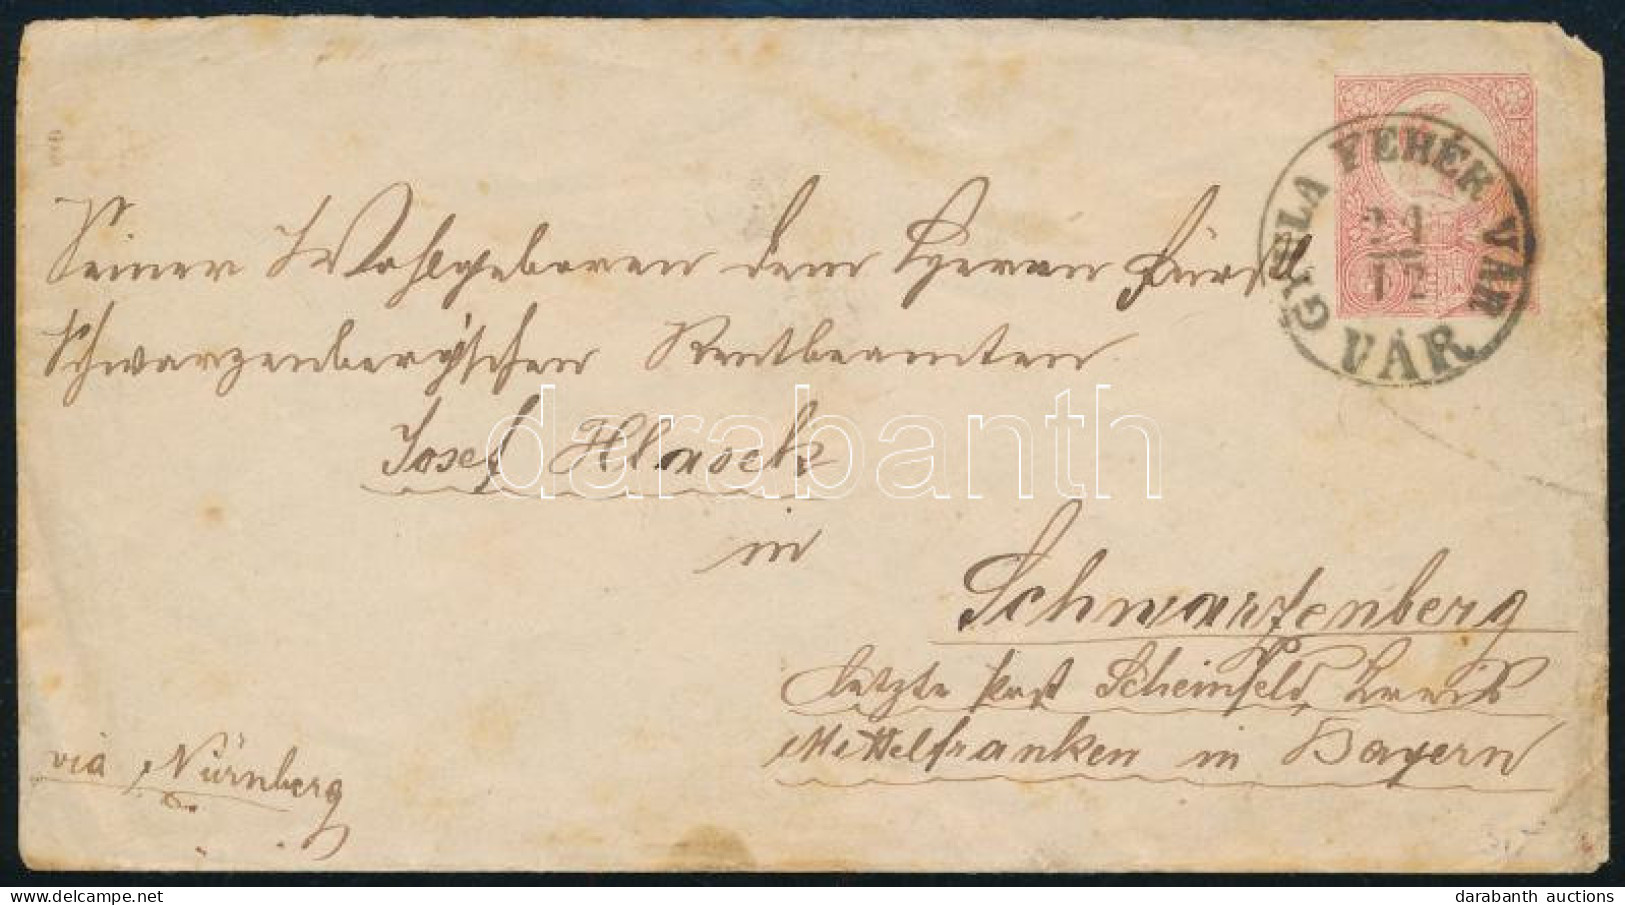 GYULA FEHÉR VÁR
24
12
VÁR
Seiner Wohlgeboren dem Herrn Fürstl
Schwarzenberg'schen Rentbeamten
Josef Hlasek
in
Schwarzenberg
letzte Post Scheinfeld, Kreis
Mittelfranken in Bayern
via Nürnberg
darabanth
darabanth auctions